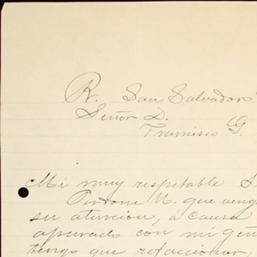 R. San Salvador
Señor D.
Francisco G.
Mi muy respetable S
Perdone U. que veng
su atencion, a causa
apurado con mi gen
tengo que refaccionar,